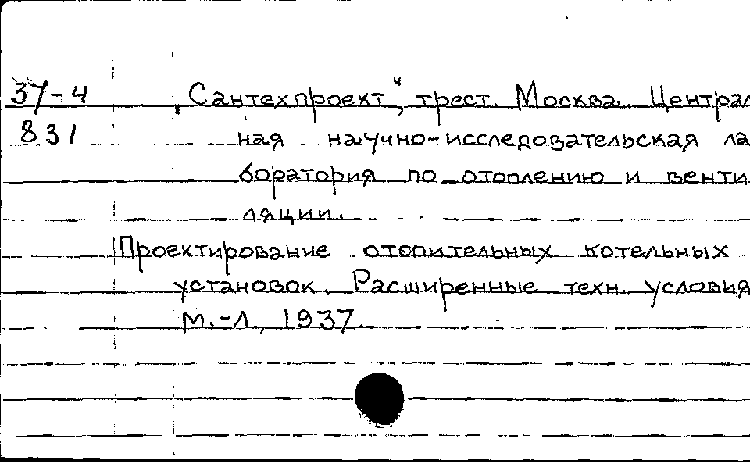 37-4 „Сантехпроект“, трест. Москва. Централ
831 ная научно-исследовательская ла
боратория по отоплению и венти
ляции.
Проектирование отопительных котельных
установок. Расширенные техн. условия
М.-Л., 1937.